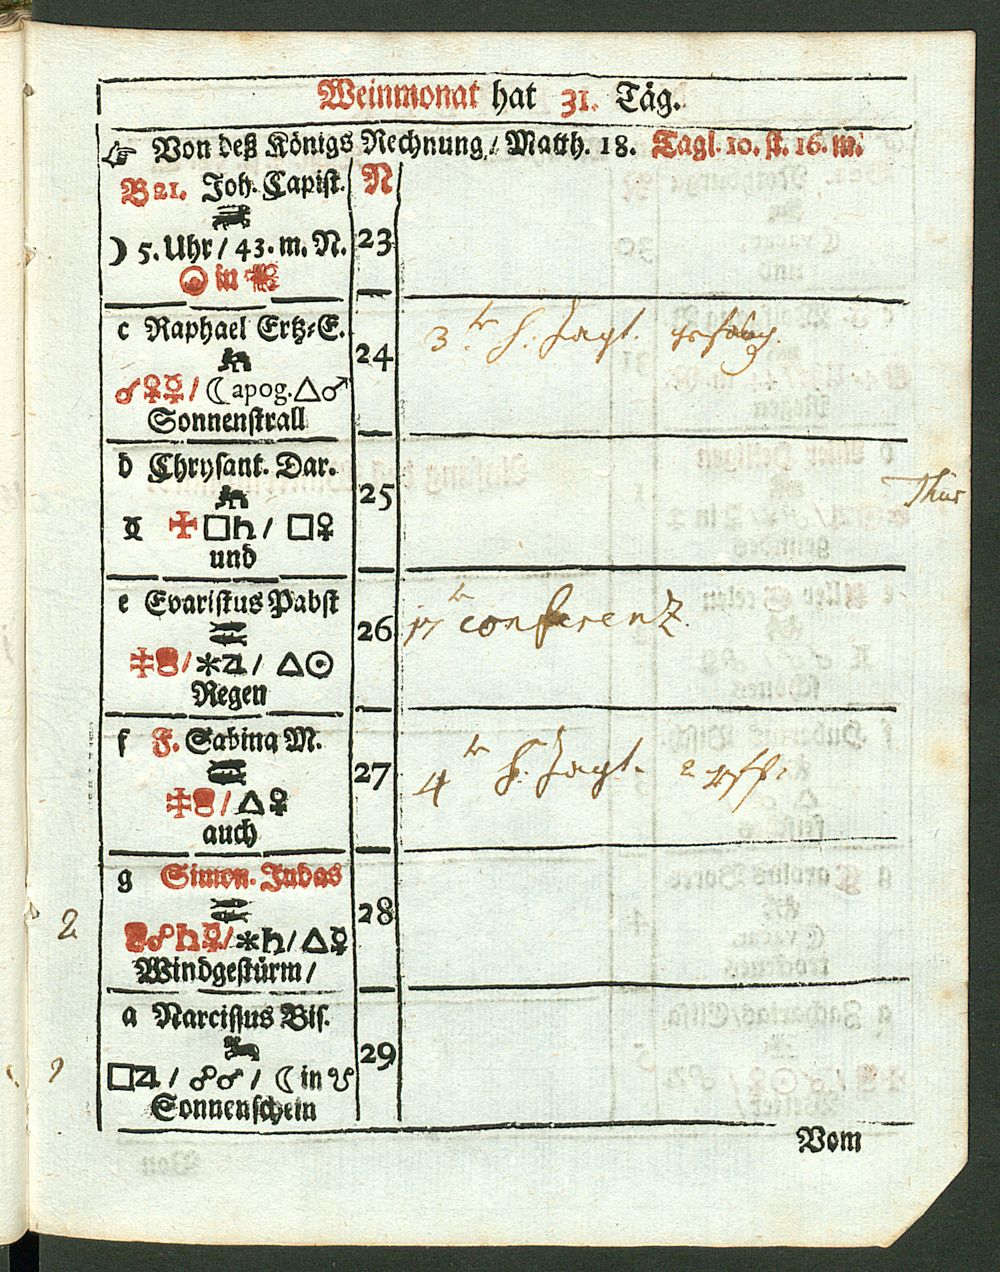 Weinmonat hat 31. Täg.
☞ Von deß Königs Rechnung / Matth. 18. Tagl. 10. st. 16. m.
B 21. Joh. Capist. N
☽ 5. Uhr / 43. m. N. 23
☉ in ♏
c Raphael Ertz-E.
24 3.tr H. Jagt.
☌♀☿ / ☾ apog. △♂
Sonnenstrall
d Chrysant. Dar.
25 Thur
☿ ✠ □♄ / □♀
und
e Evaristus Pabst
26 17te conferenZ.
/ ✶♃ / △☉
Regen
f F. Sabina M.
27 4tr H. Jagt.
/ △♀
auch
g Simon. Judas
2 28
☍♄☿ / ✶♄ / △☿
Windgestürm /
a Narcissus Bis.
29
□♃ / ☍♂ / ☾ in ☋
Sonnenschein
Vom